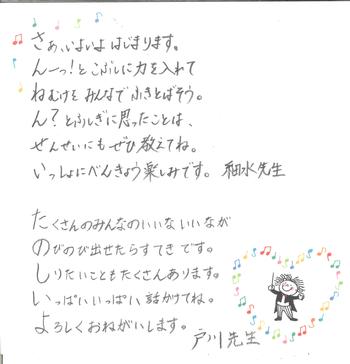 さぁ、いよいよ はじまります。
んーっ!と こぶしに力を入れて
ねむけを みんなで ふきとばそう。
ん?とふしぎに思ったことは、
せんせいにもぜひ教えてね。
いっしょにべんきょう楽しみです。 細水先生
たくさんのみんなのいいないいなが
のびのび出せたらすてきです。
しりたいこともたくさんあります。
いっぱいいっぱい話かけてね。
よろしくおねがいします。
戸川先生